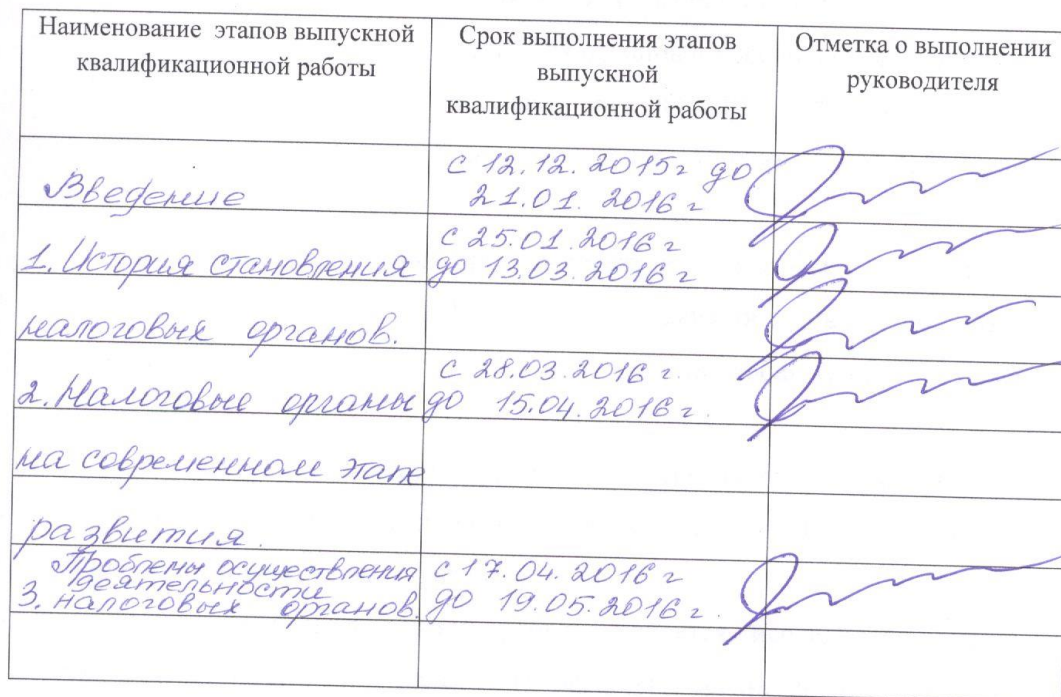 Наименование этапов выпускной
квалификационной работы
Срок выполнения этапов
выпускной
квалификационной работы
Отметка о выполнении
руководителя
Введение
с 12.12.2015г до
21.01.2016г
1. История становления
с 25.01.2016г
до 13.03.2016г
налоговых органов.
2. Налоговые органы
с 28.03.2016г.
до 15.04.2016г.
на современном этапе
развития.
Проблемы осуществления
деятельности
3. налоговых органов.
с 17.04.2016г
до 19.05.2016г.